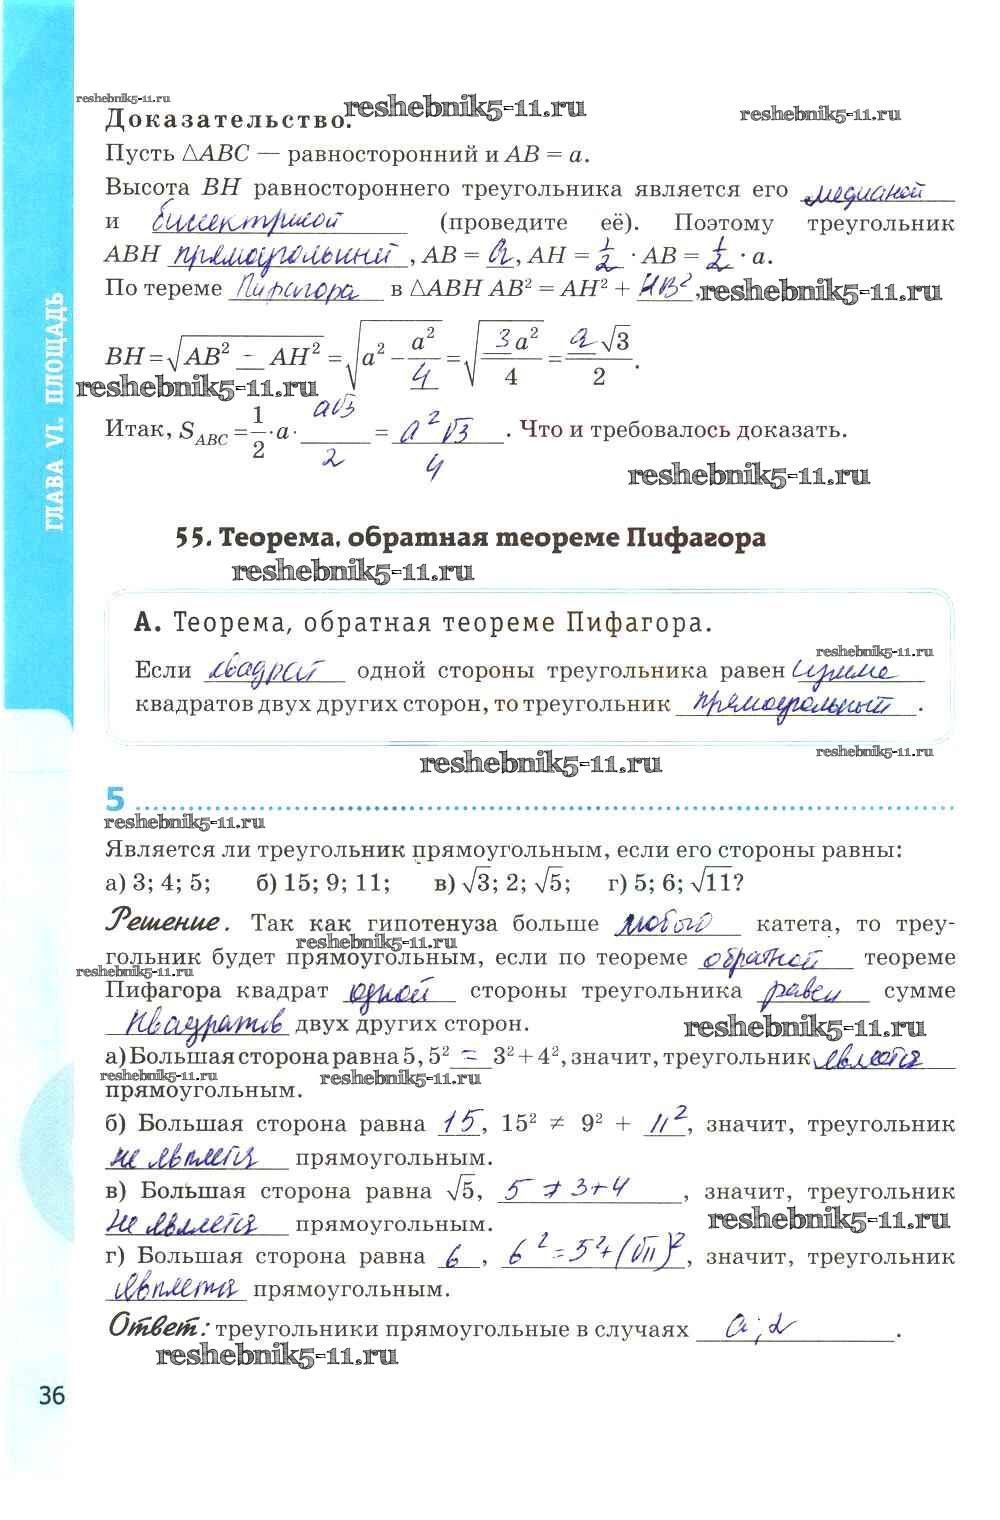 reshebnik5-11.ru
reshebnik5-11.ru
reshebnik5-11.ru
Доказательство.
Пусть △ABC — равносторонний и AB = a.
Высота BH равностороннего треугольника является его медианой
и биссектрисой (проведите её). Поэтому треугольник
ABH прямоугольный, AB = a, AH = 1/2 · AB = 1/2 · a.
По тереме Пифагора в △ABH AB² = AH² + HB², reshebnik5-11.ru
BH = √(AB² − AH²) = √(a² − a²/4) = √(3a²/4) = a√3/2.
reshebnik5-11.ru
Итак, S_ABC = 1/2 · a · a√3/2 = a²√3/4. Что и требовалось доказать.
reshebnik5-11.ru
ГЛАВА VI. ПЛОЩАДЬ
55. Теорема, обратная теореме Пифагора
reshebnik5-11.ru
А. Теорема, обратная теореме Пифагора.
reshebnik5-11.ru
Если квадрат одной стороны треугольника равен сумме
квадратов двух других сторон, то треугольник прямоугольный.
reshebnik5-11.ru
reshebnik5-11.ru
5
reshebnik5-11.ru
Является ли треугольник прямоугольным, если его стороны равны:
а) 3; 4; 5; б) 15; 9; 11; в) √3; 2; √5; г) 5; 6; √11?
Решение. Так как гипотенуза больше любого катета, то треу-
reshebnik5-11.ru
гольник будет прямоугольным, если по теореме обратной теореме
reshebnik5-11.ru
Пифагора квадрат одной стороны треугольника равен сумме
квадратов двух других сторон. reshebnik5-11.ru
а) Большая сторона равна 5, 5² = 3² + 4², значит, треугольник является
reshebnik5-11.ru reshebnik5-11.ru
прямоугольным.
б) Большая сторона равна 15, 15² ≠ 9² + 11², значит, треугольник
не является прямоугольным.
в) Большая сторона равна √5, 5 ≠ 3+4, значит, треугольник
не является прямоугольным. reshebnik5-11.ru
г) Большая сторона равна 6, 6² = 5² + (√11)², значит, треугольник
является прямоугольным.
Ответ: треугольники прямоугольные в случаях а; г.
reshebnik5-11.ru
36